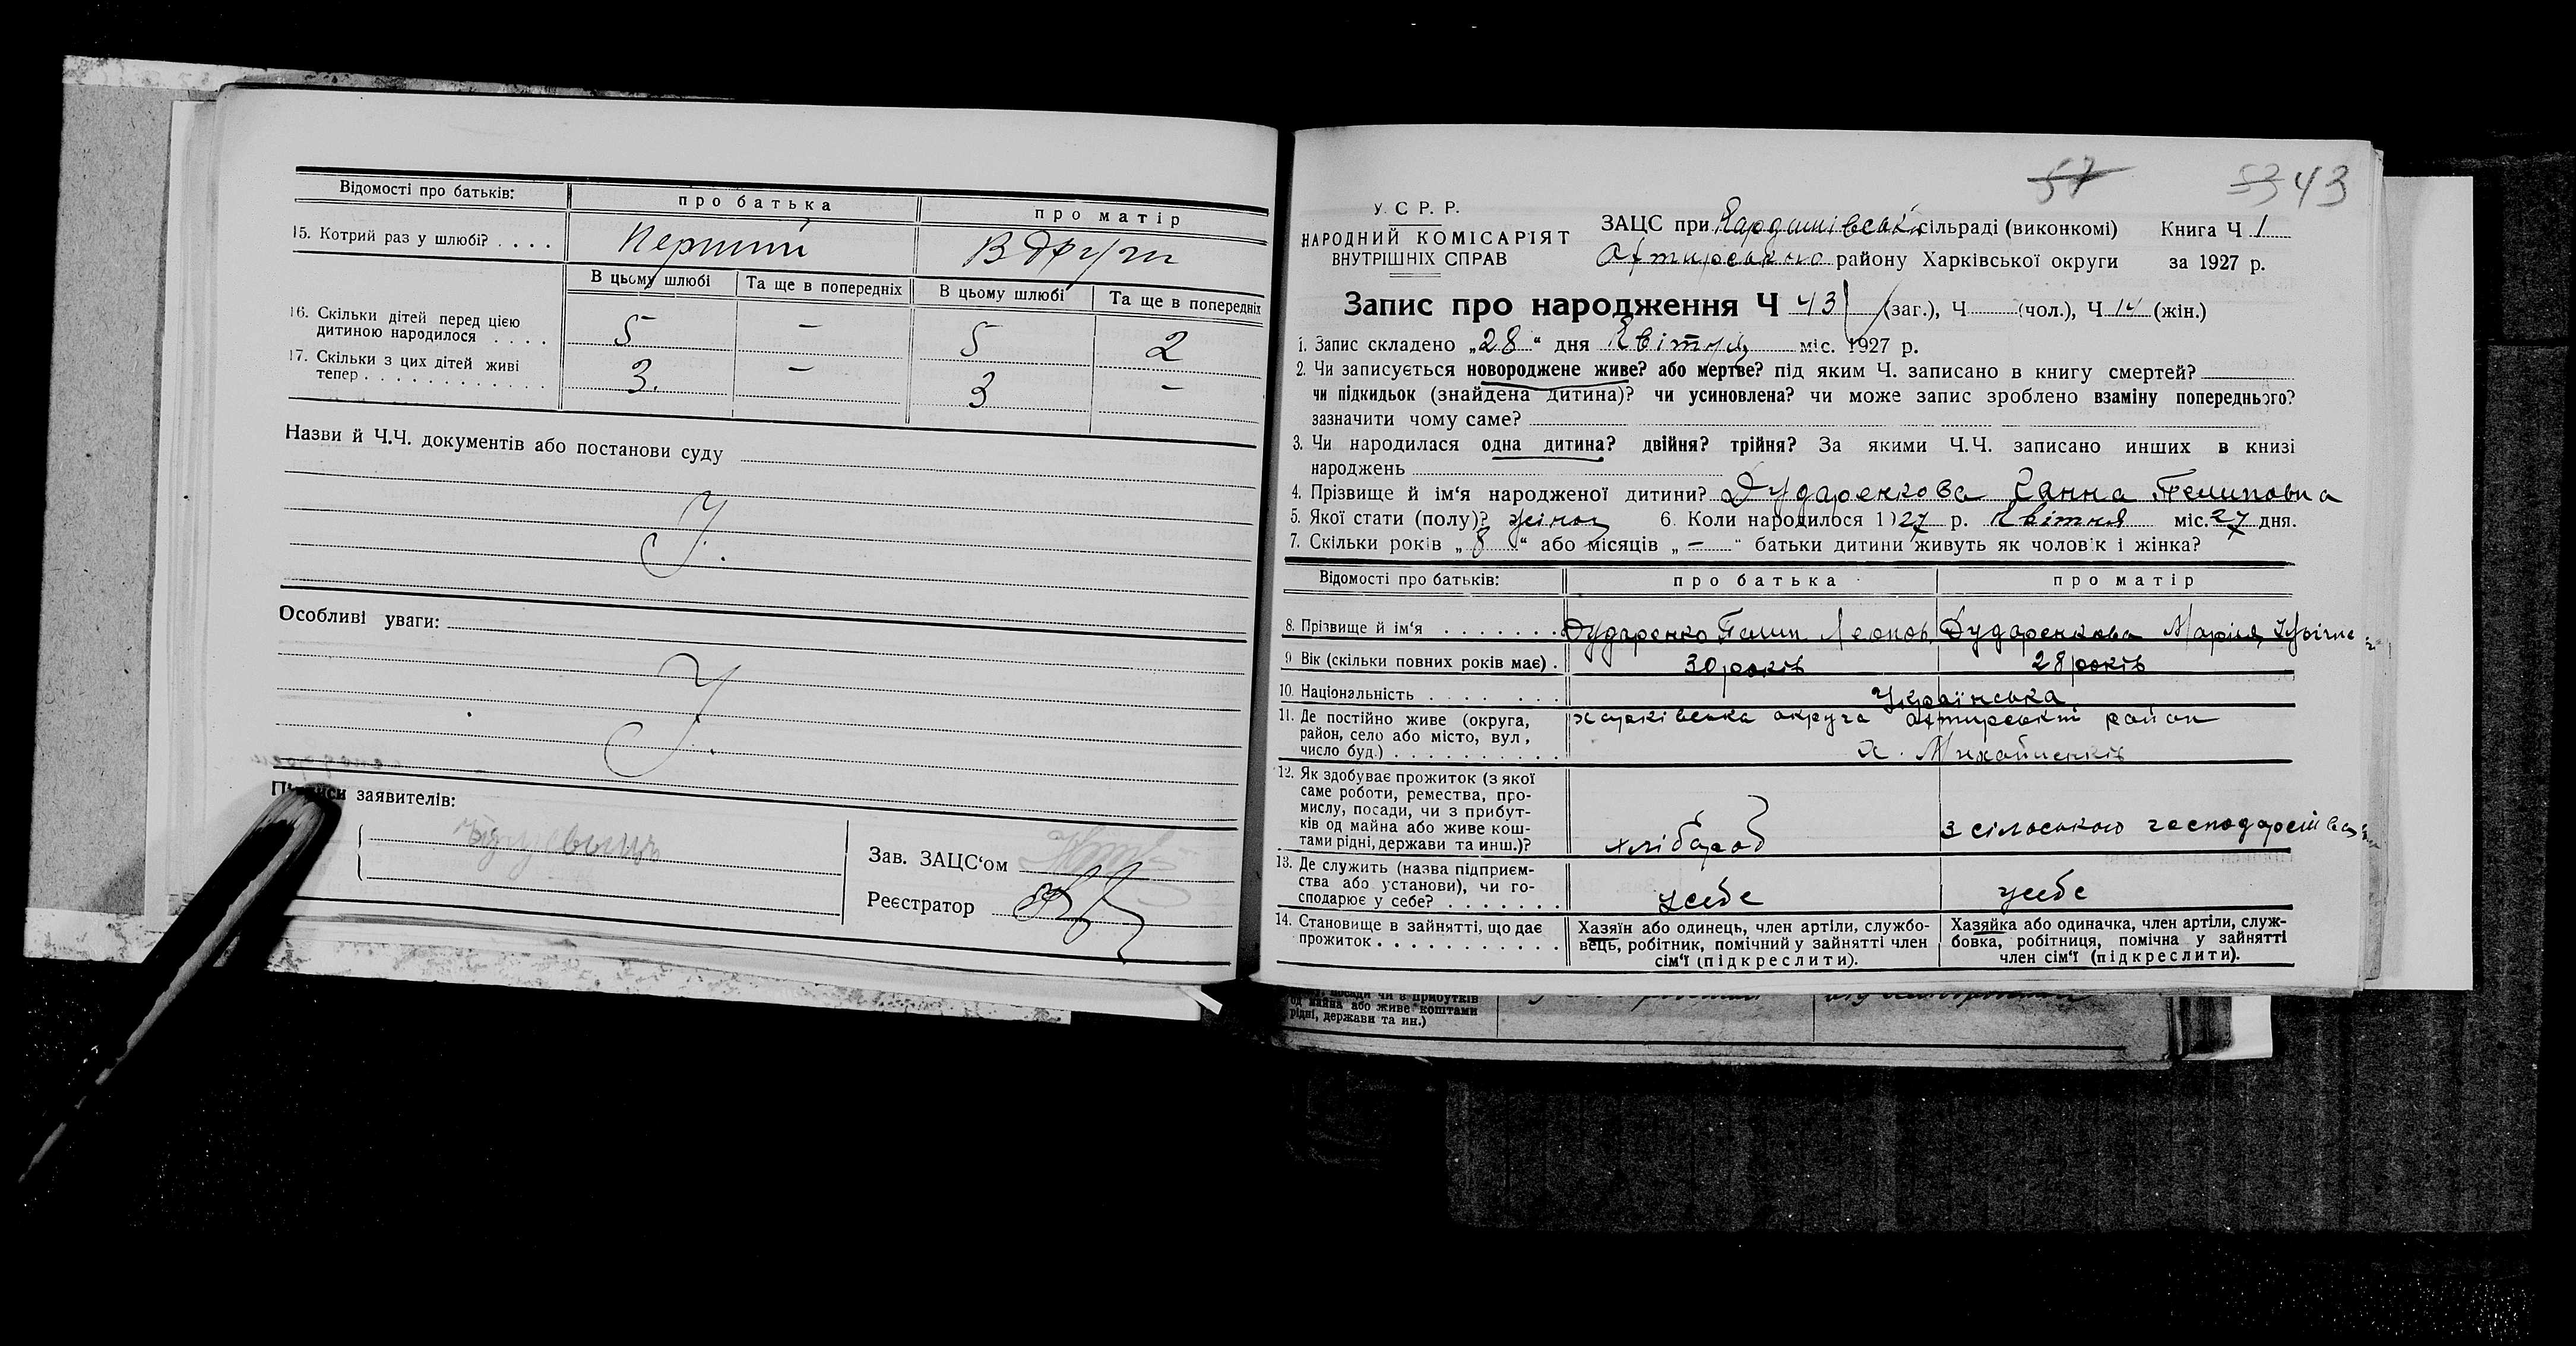 Відомості про батьків: про батька про матір
15. Котрий раз у шлюбі? . . . . Перший
В цьому шлюбі Та ще в попередніх В цьому шлюбі Та ще в попередніх
16. Скільки дітей перед цією
дитиною народилося . . . . 5 – 5 2
17. Скільки з цих дітей живі
тепер . . . . . . . . . . . . . 3. – 3 –
Назви й Ч.Ч. документів або постанови суду
Особливі уваги:
заявителів:
Зав. ЗАЦС‘ом
Реєстратор
57 53 43
У. С Р. Р.
НАРОДНИЙ КОМІСАРІЯТ
ВНУТРІШНІХ СПРАВ
ЗАЦС при сільраді (виконкомі) Книга Ч 1
району Харківської округи за 1927 р.
Запис про народження Ч 43 (заг.), Ч (чол.), Ч 14 (жін.)
1. Запис складено „28“ дня Квітня міс. 1927 р.
2. Чи записується новороджене живе? або мертве? під яким Ч. записано в книгу смертей?
чи підкидьок (знайдена дитина)? чи усиновлена? чи може запис зроблено взаміну попереднього?
зазначити чому саме?
3. Чи народилася одна дитина? двійня? трійня? За якими Ч.Ч. записано инших в книзі
народжень
4. Прізвище й ім‘я народженої дитини? Дударенкова Ганна Пелиповна
5. Якої стати (полу)? жіноч 6. Коли народилося 1927 р. Квітня міс. 27 дня.
7. Скільки років „8“ або місяців „–“ батьки дитини живуть як чоловік і жінка?
Відомості про батьків: про батька про матір
8. Прізвище й ім‘я . . . . . . . Дударенко Пелип Леонов. Дударенкова Марія
9 Вік (скільки повних років має) . 30 років 28 років
10. Національність . . . . . . . Українська
11. Де постійно живе (округа, харківська округа Охтирський район
район, село або місто, вул,
число буд.) . . . . . . . . . . х.
12. Як здобуває прожиток (з якої
саме роботи, ремества, про-
мислу, посади, чи з прибут-
ків од майна або живе кош-
тами рідні, держави та инш.)? хлібороб з сільського
13. Де служить (назва підприєм-
ства або установи), чи го-
сподарює у себе? . . . . . . . усебе усебе
14. Становище в зайнятті, що дає
прожиток . . . . . . . . . . .
Хазяїн або одинець, член артіли, службо-
вець, робітник, помічний у зайнятті член
сім‘ї (підкреслити).
Хазяйка або одиначка, член артіли, служ-
бовка, робітниця, помічна у зайнятті
член сім‘ї (підкреслити).
посади чи з прибутків
од майна або живе коштами
рідні, держави та ин.)